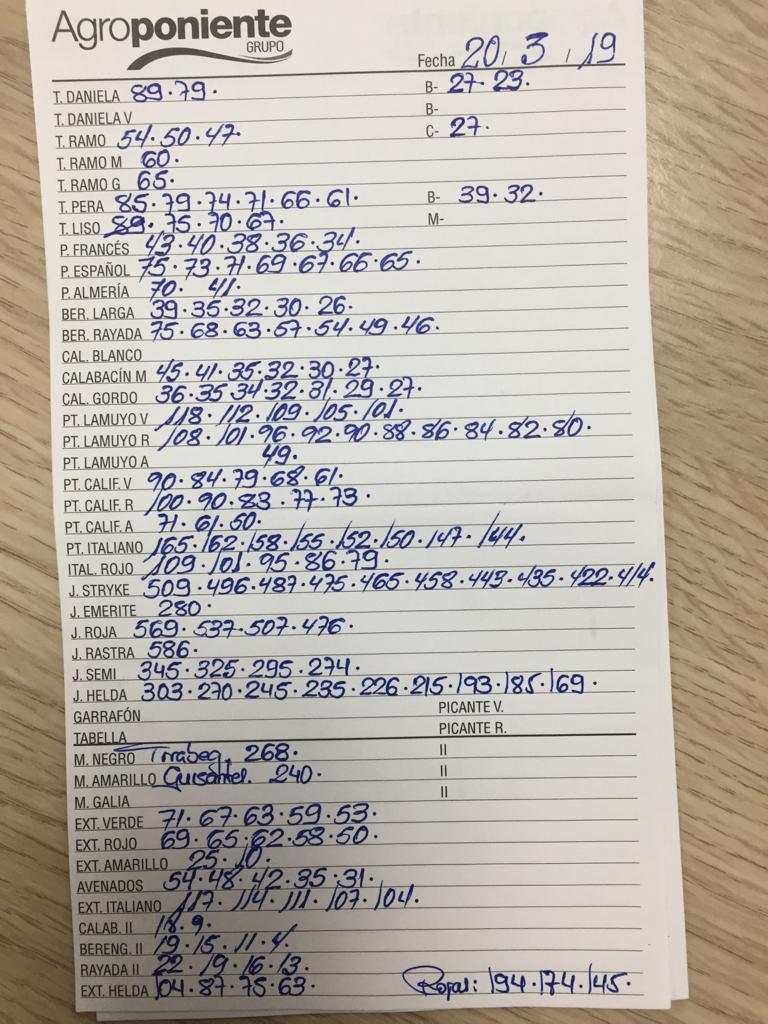 Agroponiente
GRUPO
Fecha 20/ 3 / 19
T. DANIELA 89·79. B- 27·23.
T. DANIELA V B-
T. RAMO 54·50·47. C- 27.
T. RAMO M 60.
T. RAMO G 65.
T. PERA 85·79·74·71·66·61. B- 39·32.
T. LISO 89·75·70·67. M-
P. FRANCÉS 43·40·38·36·34.
P. ESPAÑOL 75·73·71·69·67·66·65.
P. ALMERÍA 70· 41.
BER. LARGA 39·35·32·30·26.
BER. RAYADA 75·68·63·57·54·49·46.
CAL. BLANCO
CALABACÍN M 45·41·35·32·30·27.
CAL. GORDO 36·35·34·32·31·29·27.
PT. LAMUYO V 118·112·109·105·101.
PT. LAMUYO R 108·101·96·92·90·88·86·84·82·80.
PT. LAMUYO A 49.
PT. CALIF. V 90·84·79·68·61.
PT. CALIF. R 100·90·83·77·73.
PT. CALIF. A 71·61·50.
PT. ITALIANO 165·162·158·155·152·150·147·144.
ITAL. ROJO 109·101·95·86·79.
J. STRYKE 509·496·487·475·465·458·443·435·422·414.
J. EMERITE 280.
J. ROJA 569·537·507·476.
J. RASTRA 586.
J. SEMI 345·325·295·274.
J. HELDA 303·270·245·235·226·215·193·185·169.
GARRAFÓN PICANTE V.
TABELLA PICANTE R.
M. NEGRO Tirabeq. 268. II
M. AMARILLO Guisantes. 240. II
M. GALIA II
EXT. VERDE 71·67·63·59·53.
EXT. ROJO 69·65·62·58·50.
EXT. AMARILLO 25·10.
AVENADOS 54·48·42·35·31.
EXT. ITALIANO 117·114·111·107·104.
CALAB. II 18·9.
BERENG. II 19·15·11·4.
RAYADA II 22·19·16·13.
EXT. HELDA 104·87·75·63. Rojas: 194·174·145.